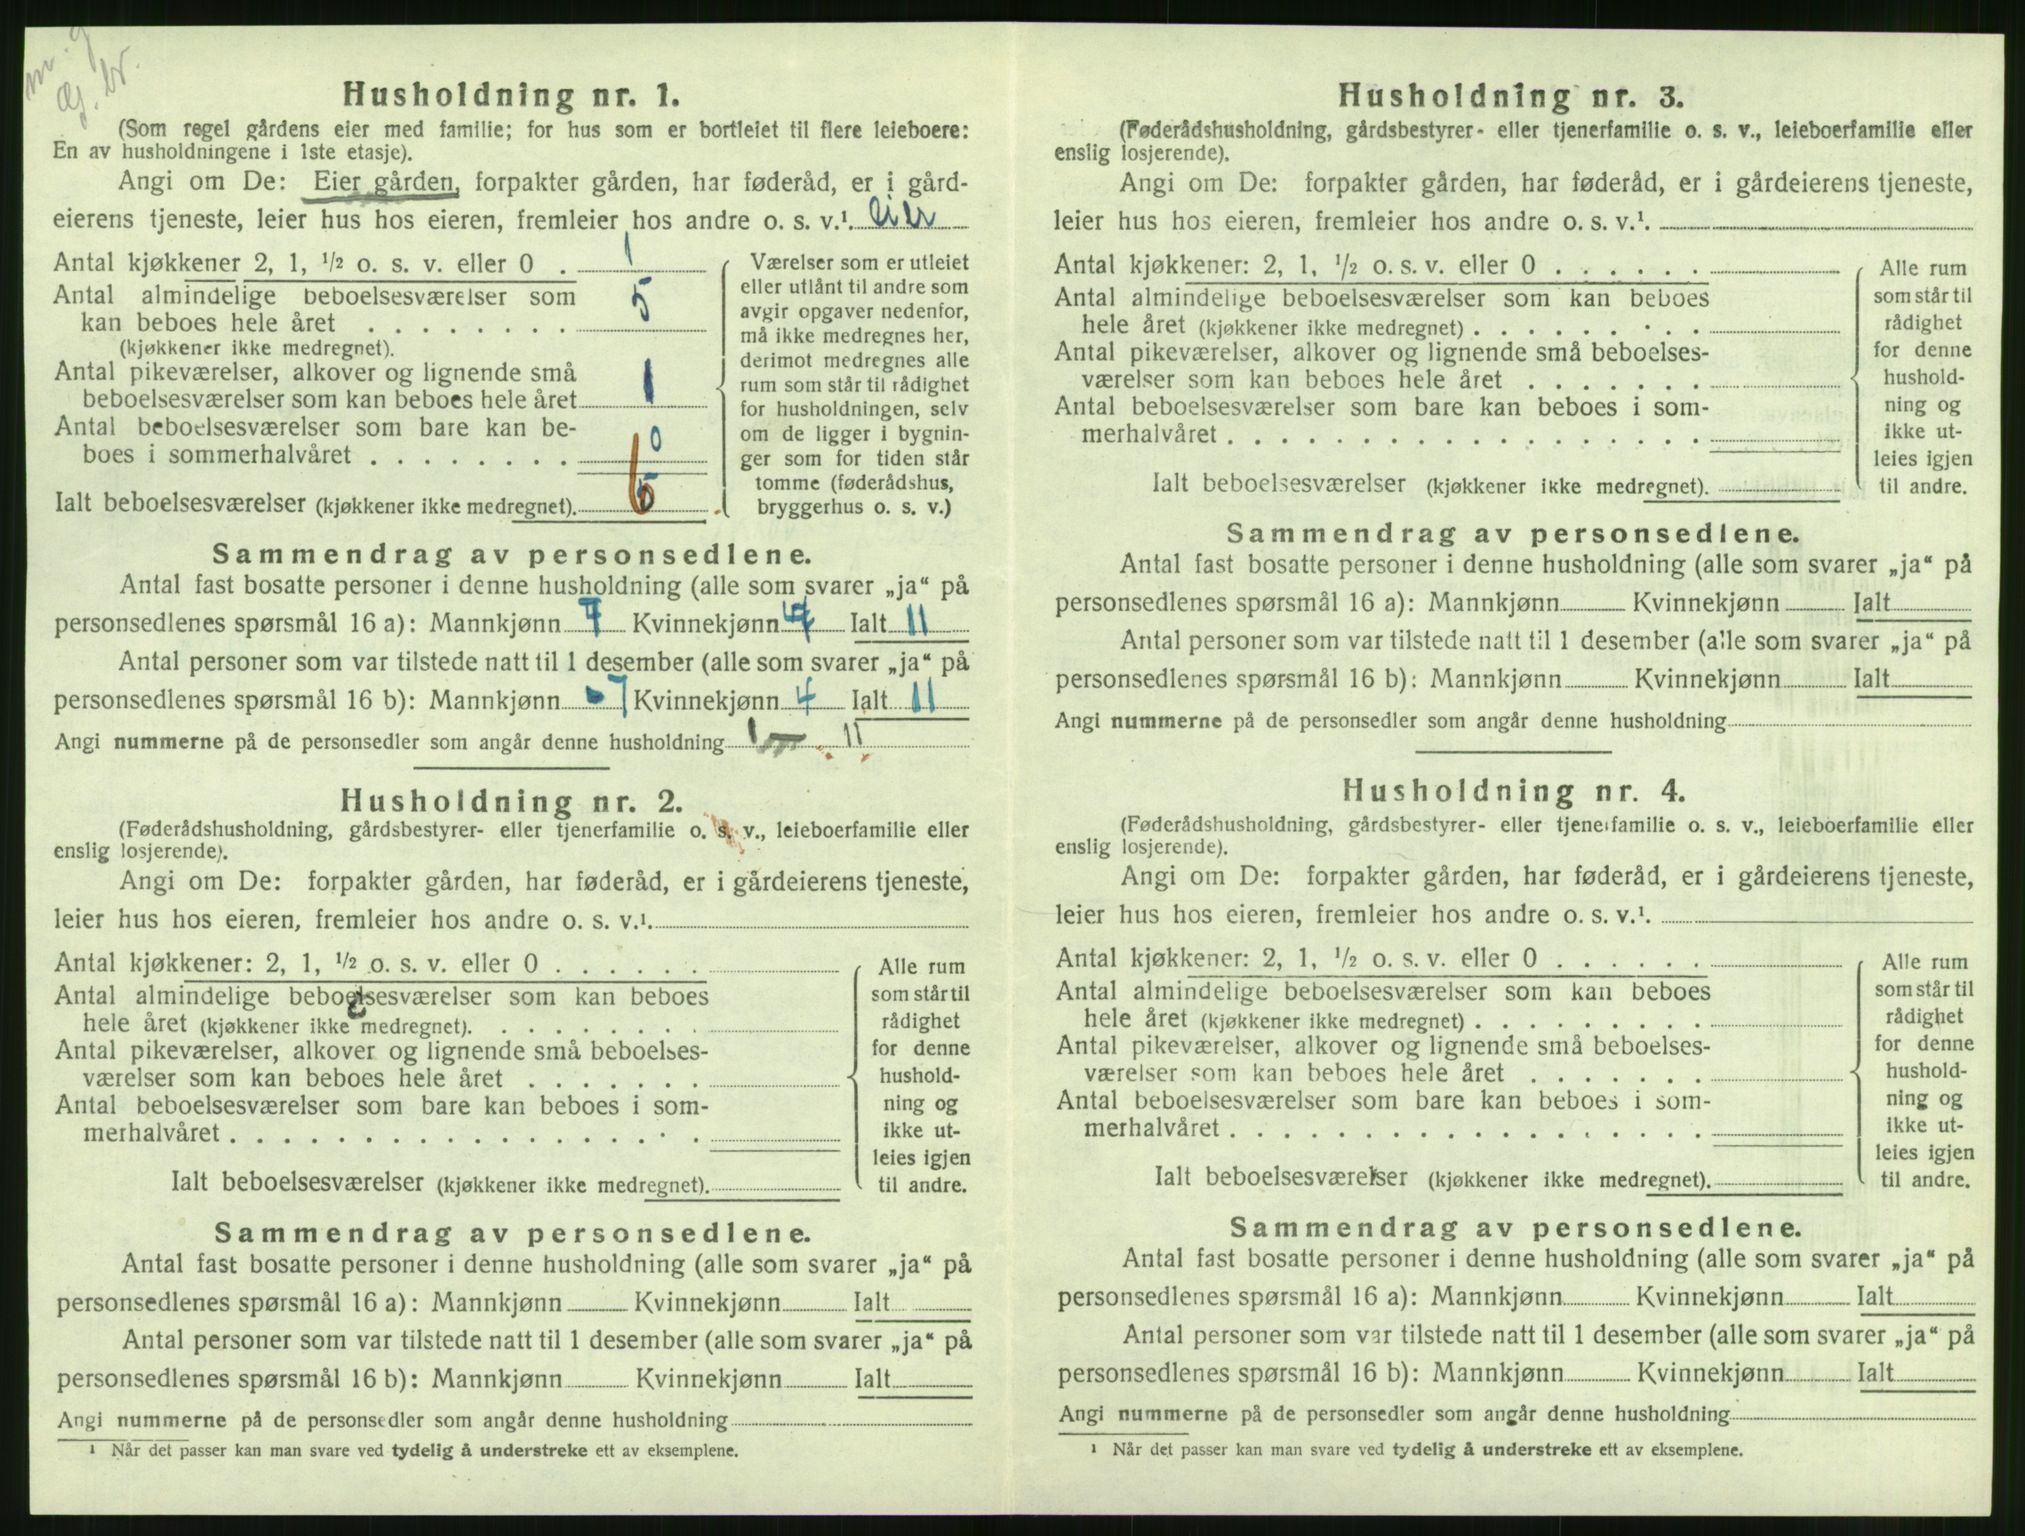 m. g
Gj. br.
Husholdning nr. 1.
(Som regel gårdens eier med familie; for hus som er bortleiet til flere leieboere:
En av husholdningene i 1ste etasje).
Angi om De: Eier gården, forpakter gården, har føderåd, er i gård-
eierens tjeneste, leier hus hos eieren, fremleier hos andre o. s. v.¹. eier
Antal kjøkkener 2, 1, ½ o. s. v. eller 0 . 1
Antal almindelige beboelsesværelser som
kan beboes hele året . . . . . . . . 5
(kjøkkener ikke medregnet).
Antal pikeværelser, alkover og lignende små
beboelsesværelser som kan beboes hele året 1
Antal beboelsesværelser som bare kan be-
boes i sommerhalvåret . . . . . . . 0
Ialt beboelsesværelser (kjøkkener ikke medregnet). 6
Værelser som er utleiet
eller utlånt til andre som
avgir opgaver nedenfor,
må ikke medregnes her,
derimot medregnes alle
rum som står til rådighet
for husholdningen, selv
om de ligger i bygnin-
ger som for tiden står
tomme (føderådshus,
bryggerhus o. s. v.)
Sammendrag av personsedlene.
Antal fast bosatte personer i denne husholdning (alle som svarer „ja“ på
personsedlenes spørsmål 16 a): Mannkjønn 7 Kvinnekjønn 4 Ialt 11
Antal personer som var tilstede natt til 1 desember (alle som svarer „ja“ på
personsedlenes spørsmål 16 b): Mannkjønn 7 Kvinnekjønn 4 Ialt 11
Angi nummerne på de personsedler som angår denne husholdning 1 — 11
Husholdning nr. 2.
(Føderådshusholdning, gårdsbestyrer- eller tjenerfamilie o. s. v., leieboerfamilie eller
enslig losjerende).
Angi om De: forpakter gården, har føderåd, er i gårdeierens tjeneste,
leier hus hos eieren, fremleier hos andre o. s. v.¹.
Antal kjøkkener: 2, 1, ½ o. s. v. eller 0 . . . . . .
Antal almindelige beboelsesværelser som kan beboes
hele året (kjøkkener ikke medregnet). . . . . . . . .
Antal pikeværelser, alkover og lignende små beboelses-
værelser som kan beboes hele året . . . . . . .
Antal beboelsesværelser som bare kan beboes i som-
merhalvåret . . . . . . . . . . . . . . . . . .
Ialt beboelsesværelser (kjøkkener ikke medregnet).
Alle rum
som står til
rådighet
for denne
hushold-
ning og
ikke ut-
leies igjen
til andre.
Sammendrag av personsedlene.
Antal fast bosatte personer i denne husholdning (alle som svarer „ja“ på
personsedlenes spørsmål 16 a): Mannkjønn Kvinnekjønn Ialt
Antal personer som var tilstede natt til 1 desember (alle som svarer „ja“ på
personsedlenes spørsmål 16 b): Mannkjønn Kvinnekjønn Ialt
Angi nummerne på de personsedler som angår denne husholdning
¹ Når det passer kan man svare ved tydelig å understreke ett av eksemplene.
Husholdning nr. 3.
(Føderådshusholdning, gårdsbestyrer- eller tjenerfamilie o. s. v., leieboerfamilie eller
enslig losjerende).
Angi om De: forpakter gården, har føderåd, er i gårdeierens tjeneste,
leier hus hos eieren, fremleier hos andre o. s. v.¹.
Antal kjøkkener: 2, 1, ½ o. s. v. eller 0 . . . . . .
Antal almindelige beboelsesværelser som kan beboes
hele året (kjøkkener ikke medregnet) . . . . . . . . .
Antal pikeværelser, alkover og lignende små beboelses-
værelser som kan beboes hele året . . . . . . .
Antal beboelsesværelser som bare kan beboes i som-
merhalvåret . . . . . . . . . . . . . . . . . .
Ialt beboelsesværelser (kjøkkener ikke medregnet).
Alle rum
som står til
rådighet
for denne
hushold-
ning og
ikke ut-
leies igjen
til andre.
Sammendrag av personsedlene.
Antal fast bosatte personer i denne husholdning (alle som svarer „ja“ på
personsedlenes spørsmål 16 a): Mannkjønn Kvinnekjønn Ialt
Antal personer som var tilstede natt til 1 desember (alle som svarer „ja“ på
personsedlenes spørsmål 16 b): Mannkjønn Kvinnekjønn Ialt
Angi nummerne på de personsedler som angår denne husholdning
Husholdning nr. 4.
(Føderådshusholdning, gårdsbestyrer- eller tjenerfamilie o. s. v., leieboerfamilie eller
enslig losjerende).
Angi om De: forpakter gården, har føderåd, er i gårdeierens tjeneste,
leier hus hos eieren, fremleier hos andre o. s. v.¹.
Antal kjøkkener: 2, 1, ½ o. s. v. eller 0 . . . . . .
Antal almindelige beboelsesværelser som kan beboes
hele året (kjøkkener ikke medregnet) . . . . . . . . .
Antal pikeværelser, alkover og lignende små beboelses-
værelser som kan beboes hele året . . . . . . .
Antal beboelsesværelser som bare kan beboes i som-
merhalvåret . . . . . . . . . . . . . . . . . .
Ialt beboelsesværelser (kjøkkener ikke medregnet).
Alle rum
som står til
rådighet
for denne
hushold-
ning og
ikke ut-
leies igjen
til andre.
Sammendrag av personsedlene.
Antal fast bosatte personer i denne husholdning (alle som svarer „ja“ på
personsedlenes spørsmål 16 a): Mannkjønn Kvinnekjønn Ialt
Antal personer som var tilstede natt til 1 desember (alle som svarer „ja“ på
personsedlenes spørsmål 16 b): Mannkjønn Kvinnekjønn Ialt
Angi nummerne på de personsedler som angår denne husholdning
¹ Når det passer kan man svare ved tydelig å understreke ett av eksemplene.